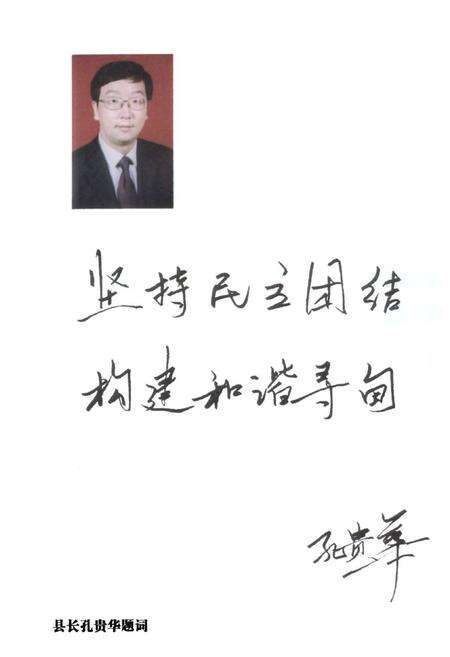 坚持民主团结
构建和谐寻甸
孔贵华
县长孔贵华题词